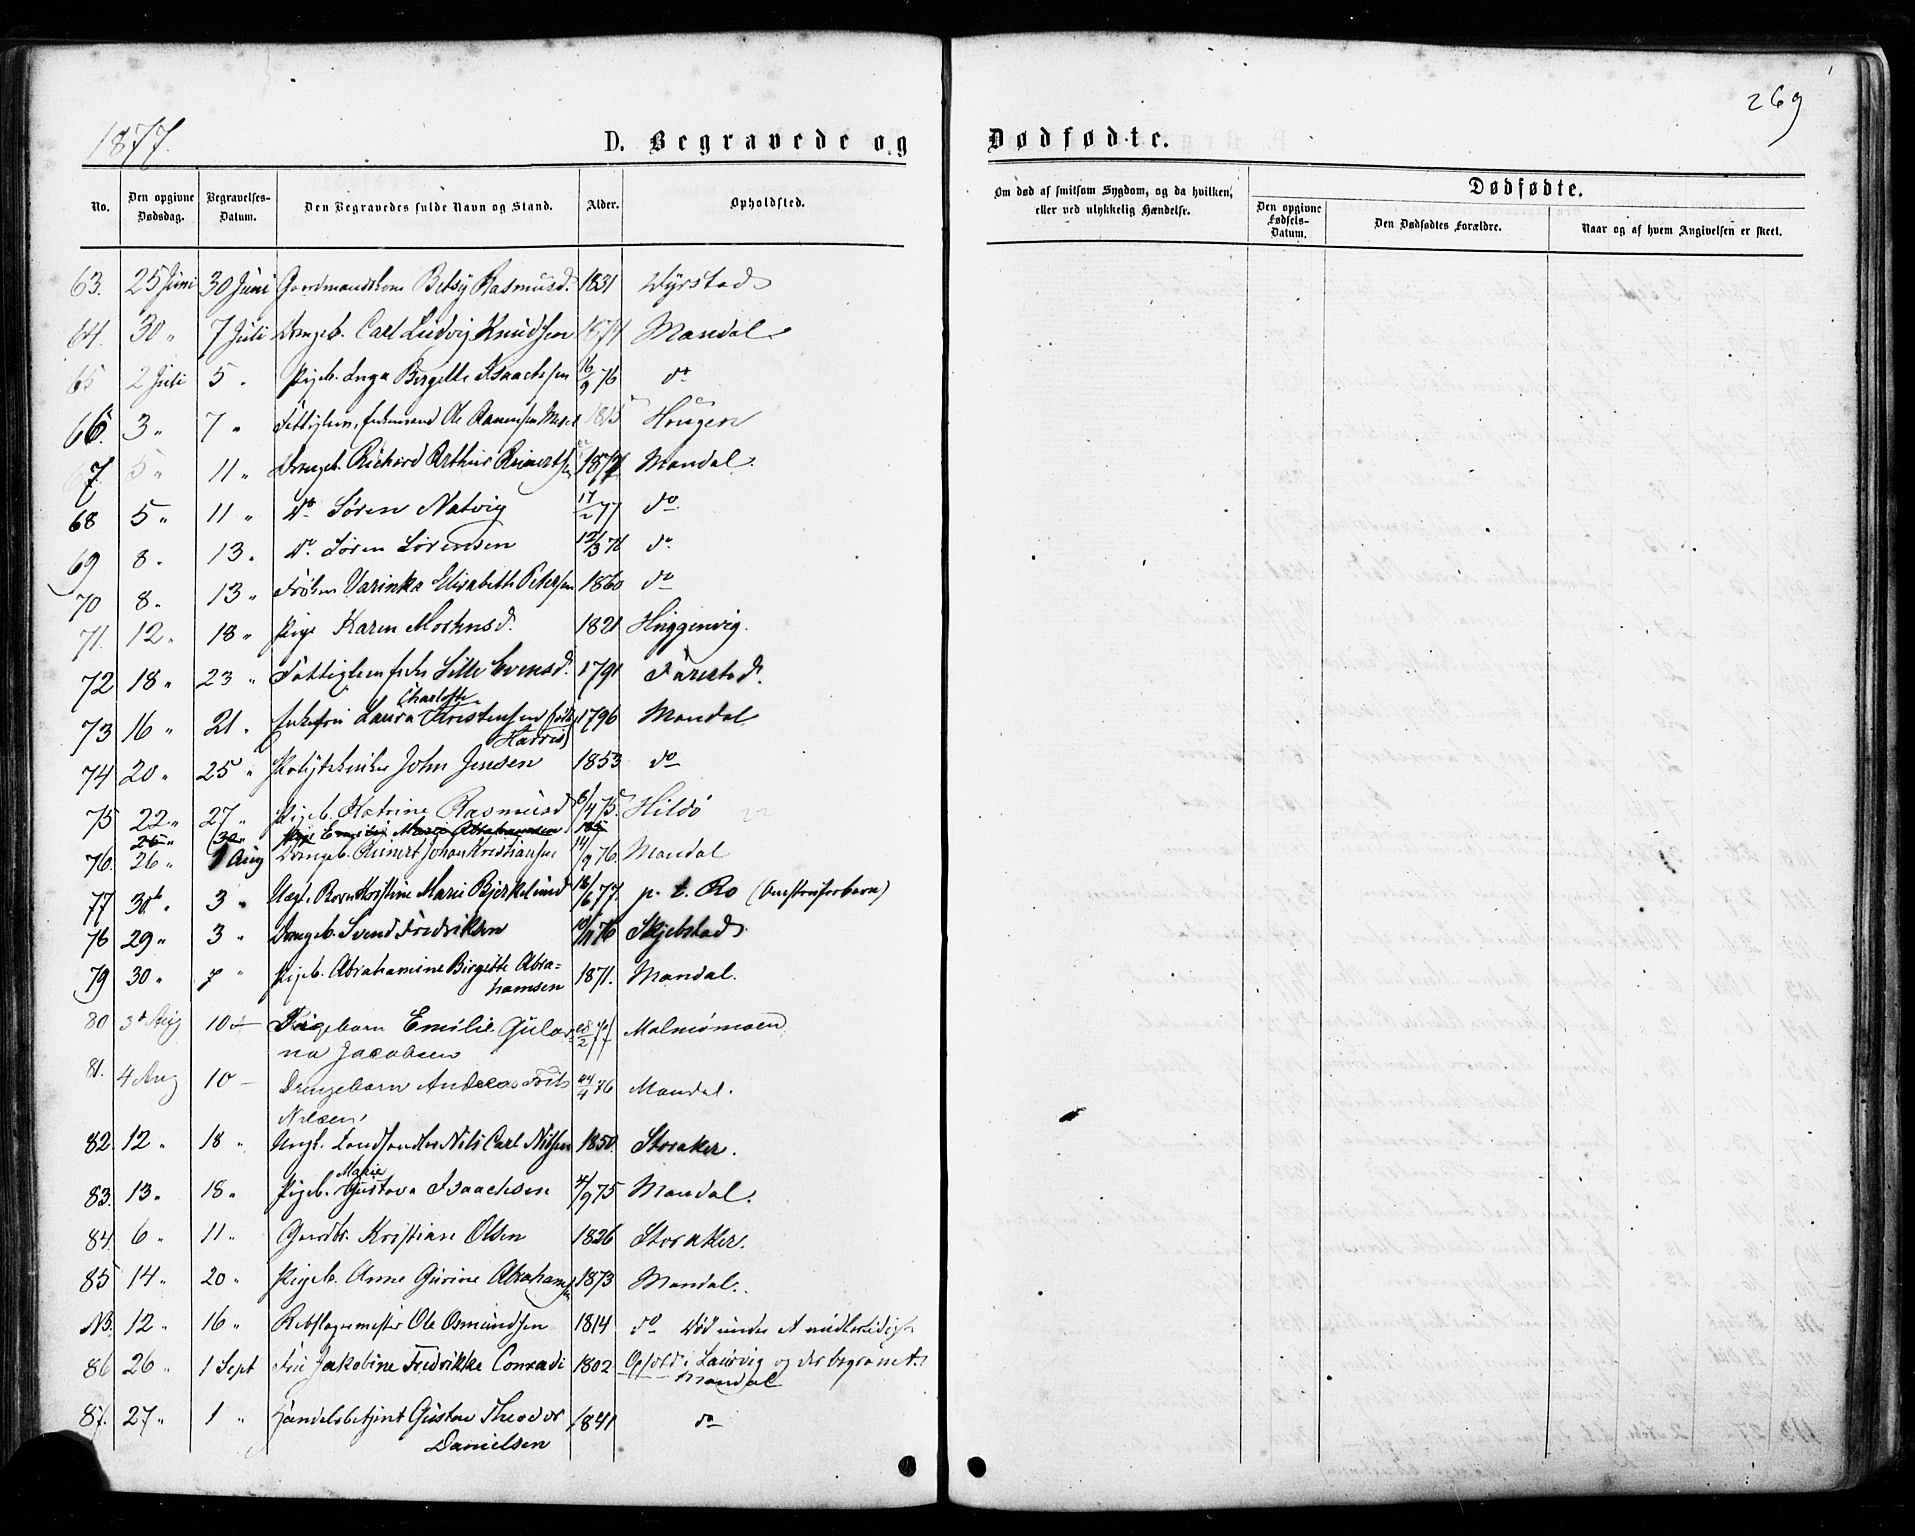 1877.
D. Begravede og Dødfødte.
269
No. Den opgivne Dødsdag. Begravelses-Datum. Den Begravedes fulde Navn og Stand. Alder. Opholdsted.
Om død af smitsom Sygdom, og da hvilken, eller ved ulykkelig Hændelse.
Dødfødte.
Den opgivne Fødsels-Datum. Den Dødfødtes Forældre. Naar og af hvem Angivelsen er skeet.
63. 25 Juni 30 Juni Gaardmandskone Betsy Rasmusd. 1831 Dyrstad
64. 30 " 7 Juli Drengeb. Carl Ludvig Knudsen 1874 Mandal
65 2 Juli 5 " Pigeb. Inga Bergette Isaachsen 16/9 76 do
66. 3 " 7 " Fattiglem, Enkemand Ole 1815 Hougen
67. 5 " 11 " Drengeb. Richard Arthur Reinertsen Mandal.
68 5 " 11 " do Søren Natvig 17/2 77 do
69 8 " 13 " do Søren Sørensen 12/3 76 do
70 8 " 13 " Frøken Varinka Elisabeth Petersen 1860 do
71. 12 " 18 " Pige Karen Mortensd. 1821 Huggenvig.
72 18 " 23 " Fattiglem Enke Sille Evensd. 1791 Farestad.
Charlotte
73 16 " 21 " Enkefru Laura Christensen (født 1796 Mandal
Harris)
74 20 " 25 " Polytekniker John Jensen 1853 do
75 22 " 27 " Pigeb. Katrine Rasmusd 8/4 75 Hildø
26 " 30 " Pige Emilie Marie Abrahamsen
76. 26 " 1 Aug Drengeb. Reinert Johan Kristiansen 14/9 76. Mandal
77 30 " 3 " Uægt. Barn Kristine Marie Bjerkelund 18/6 77. p. t. Ro
78 29 " 3 " Drengeb. Svend Fredriksen 76 Skjebstad
79 30 " 7 " Pigeb. Abrahamine Birgitte Abra=
hamsen 1871. Mandal.
80 3d Aug 10 — Pigebarn Emilie Gular-
na Jacobsen 28/2 77 Malmømoen
81. 4 Aug 10 — Drengebarn Andreas Frits
Nilsen 24/4 76 Mandal.
82. 12 " 18 " Ungk. Nils Carl Nilsen 1850. Storaker.
Marie
83. 13 " 18 " Pigeb. Gustava Isaachsen 4/9 75 Mandal.
84. 6 " 11 " Gaardbr. Kristian Olsen 1826 Storaker.
85 14 " 20 " Pigeb. Anne Gurine Abrahamsen 1873 Mandal.
NB. 12 " 16 " Rebslagermester Ole Osmundsen 1814 do Død under et midlertidigt
86 26 " 1 Sept Fru Jakobine Fredrikke Conradi 1802 Ophold i Laurvig og der begravet.
Mandal
87. 27 " 1 " Handelsbetjent Gustav Theodor 1841 do
Danielsen